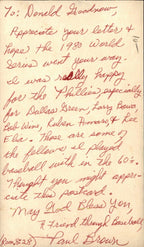 To: Donald Goodnow,
Appreciate your letter &
hope the 1980 World
Series went your way.
I was really happy
for the Phillies, especially
for Dallas Green, Larry Bowa,
Bob Wine, Ruben Amaro, & Lee
Elia. Those are some of
the fellows I played
baseball with in the 60's.
Thought you might appre-
ciate this postcard.
May God Bless You
A Friend through Baseball
Paul Brown
(Rom. 8:28)